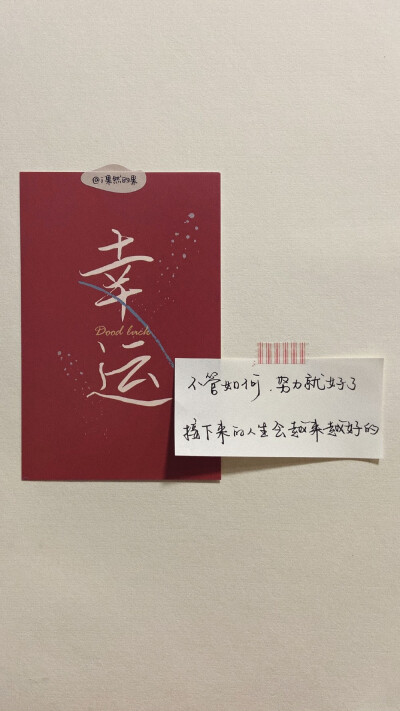 @i果然的果
幸
Dood luck
运
不管如何.努力就好了
接下来的人生会越来越好的